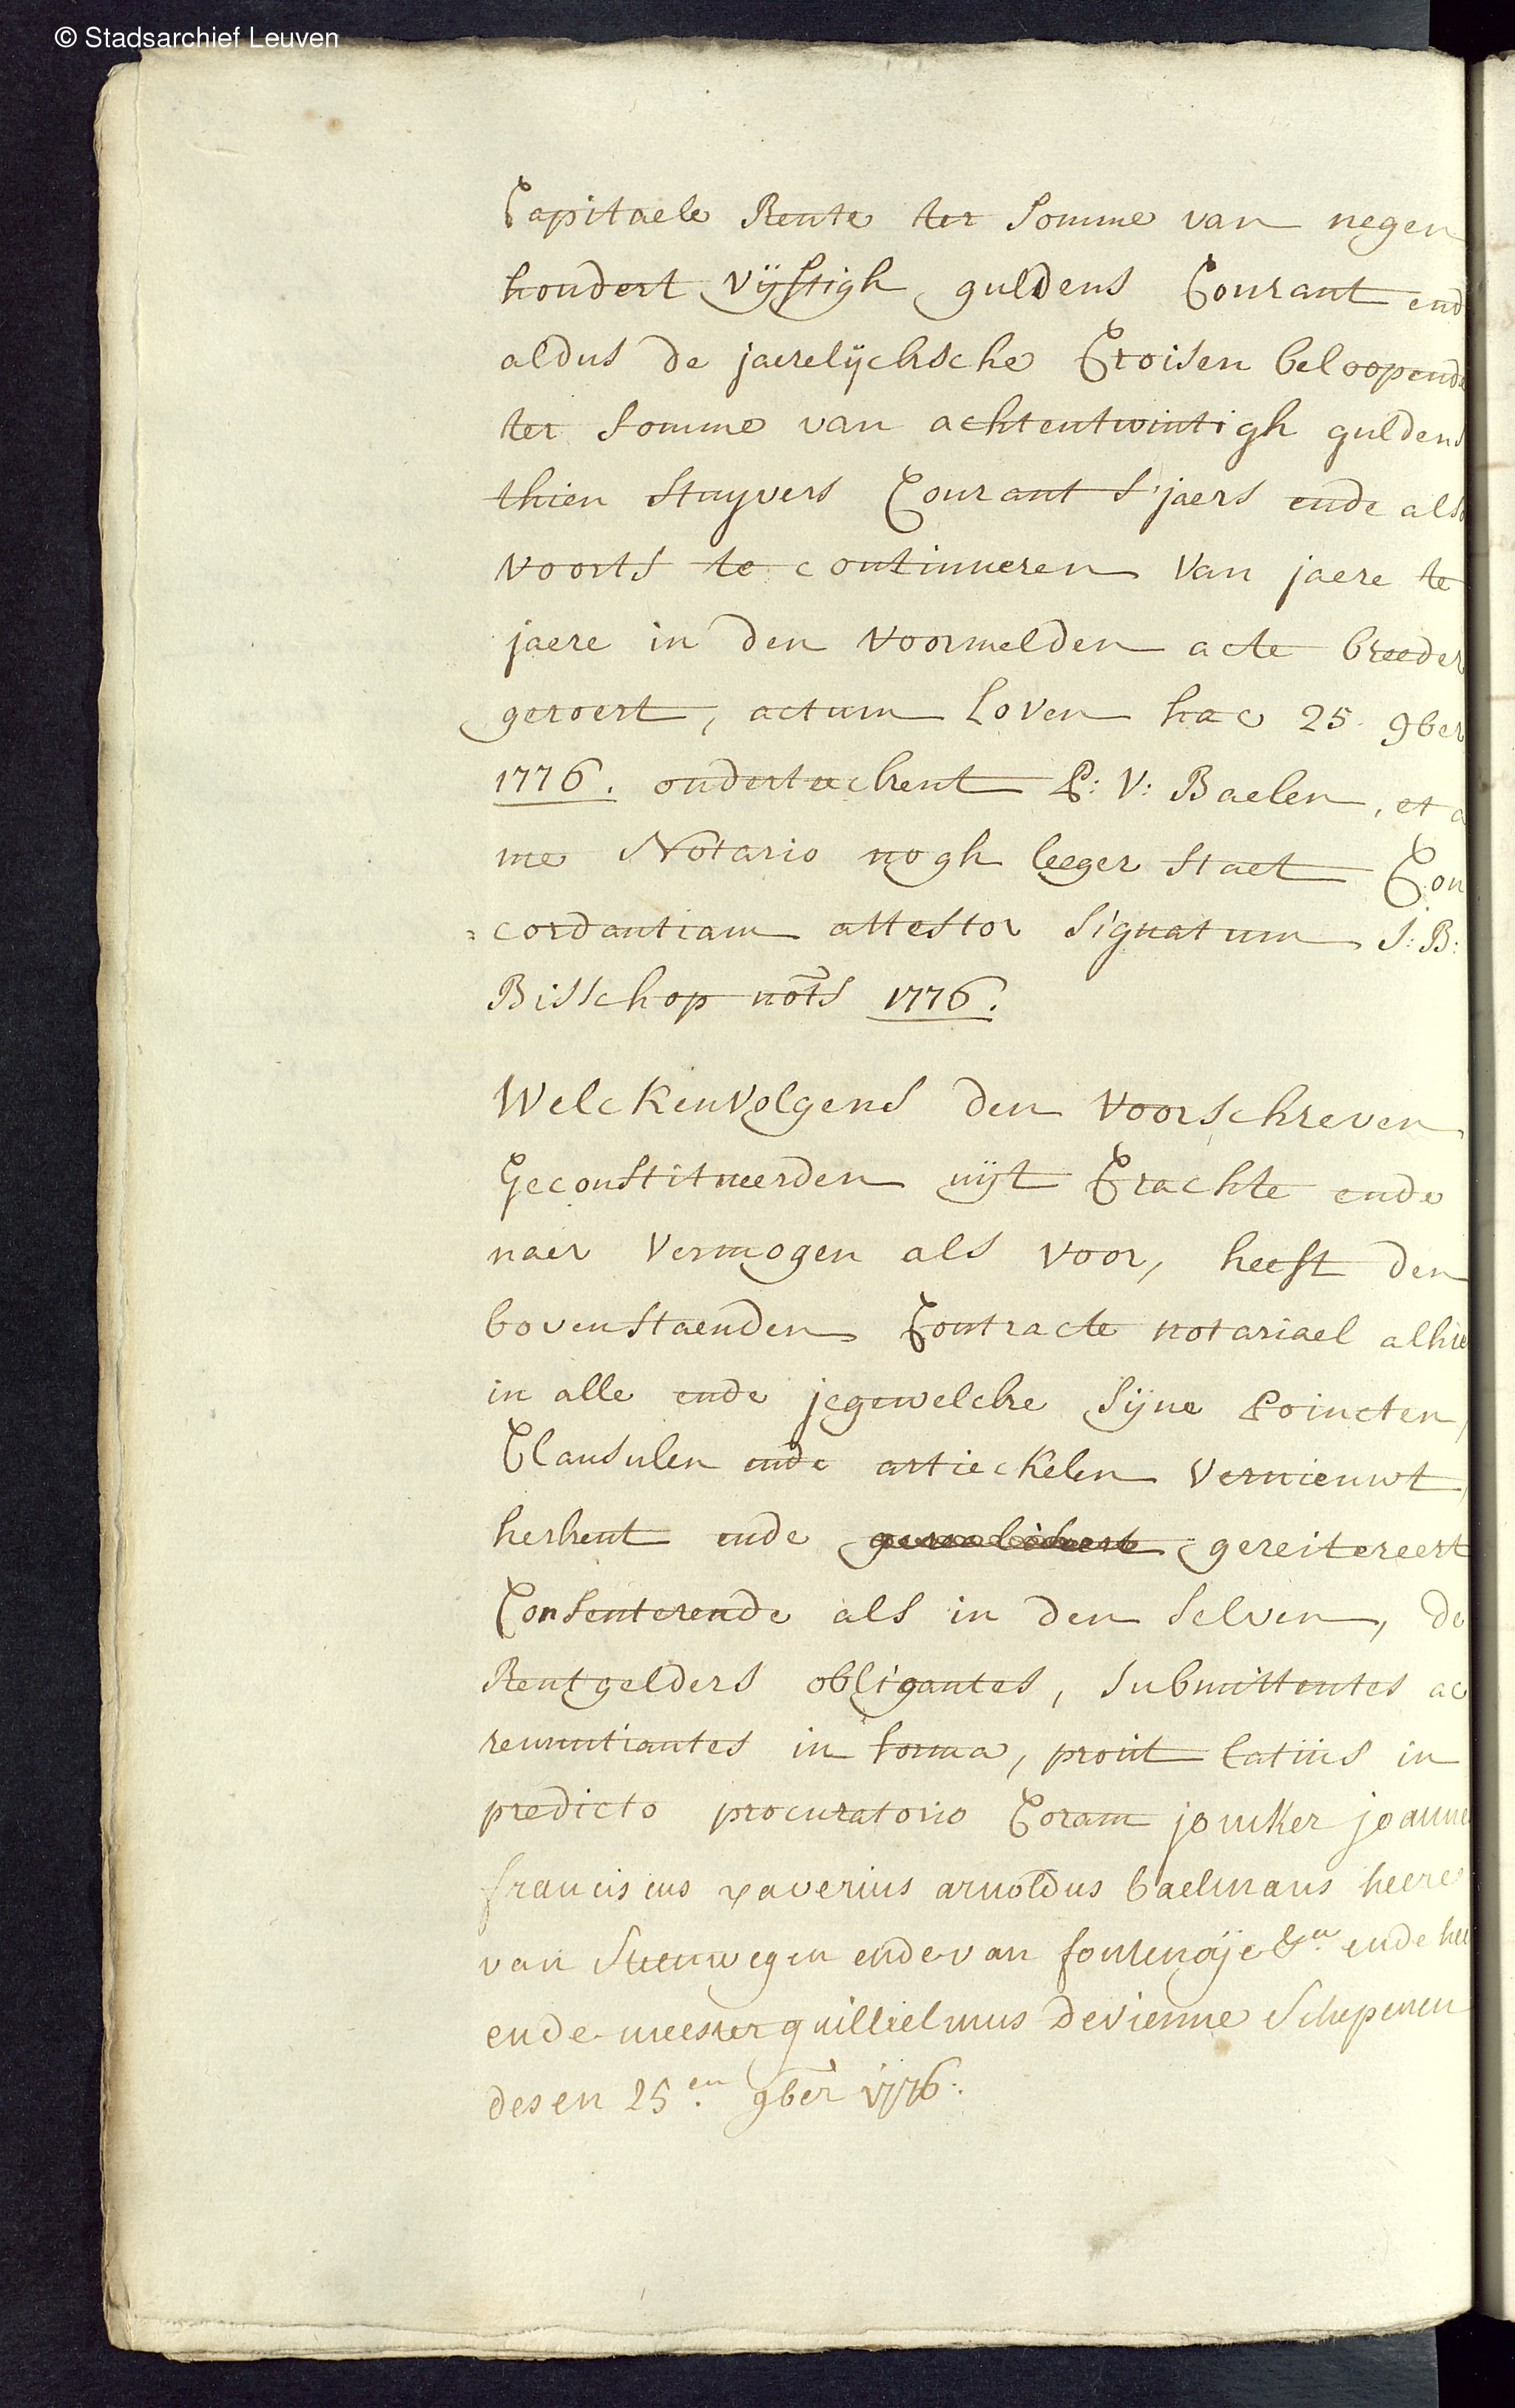 © Stadsarchief Leuven
Capitaele Rente ter Somme van negen
hondert vijftigh guldens Courant end
aldus de jaerelijcksche Croisen beloopende
ter Somme van achtentwintigh guldens
thien Stuyvers Courant S'jaers ende also
voorts te continueren van jaere te
jaere in den voormelden acte breeder
geroert, actum Loven hac 25. 9ber
1776. onderteekent P: V: Baelen, et a
me Notario nogh leeger staet Con
=cordantiam attestor Signatum J: B:
Bisschop nots 1776.
Welckenvolgens den voorschreven
Geconstitueerden uijt Crachte ende
naer vermogen als voor, heeft den
bovenstaenden Contracte notariael alhie
in alle ende jegewelcke Sijne Poincten,
Clausulen ende artieckelen vernieuwt,
herkent ende gereitereert
Consenterende als in den Selven, de
Rentgelders obligantes, Submittentes ac
renuntiantes in forma, proùt latiùs in
predicto procuratorio Coram jonker joannes
franciscus xaverius arnoldus baelmans heere
van Steenwegen ende van fontenoije &a. ende hee
ende meester guillielmus devienne Schepenen
desen 25.en 9ber 1776.